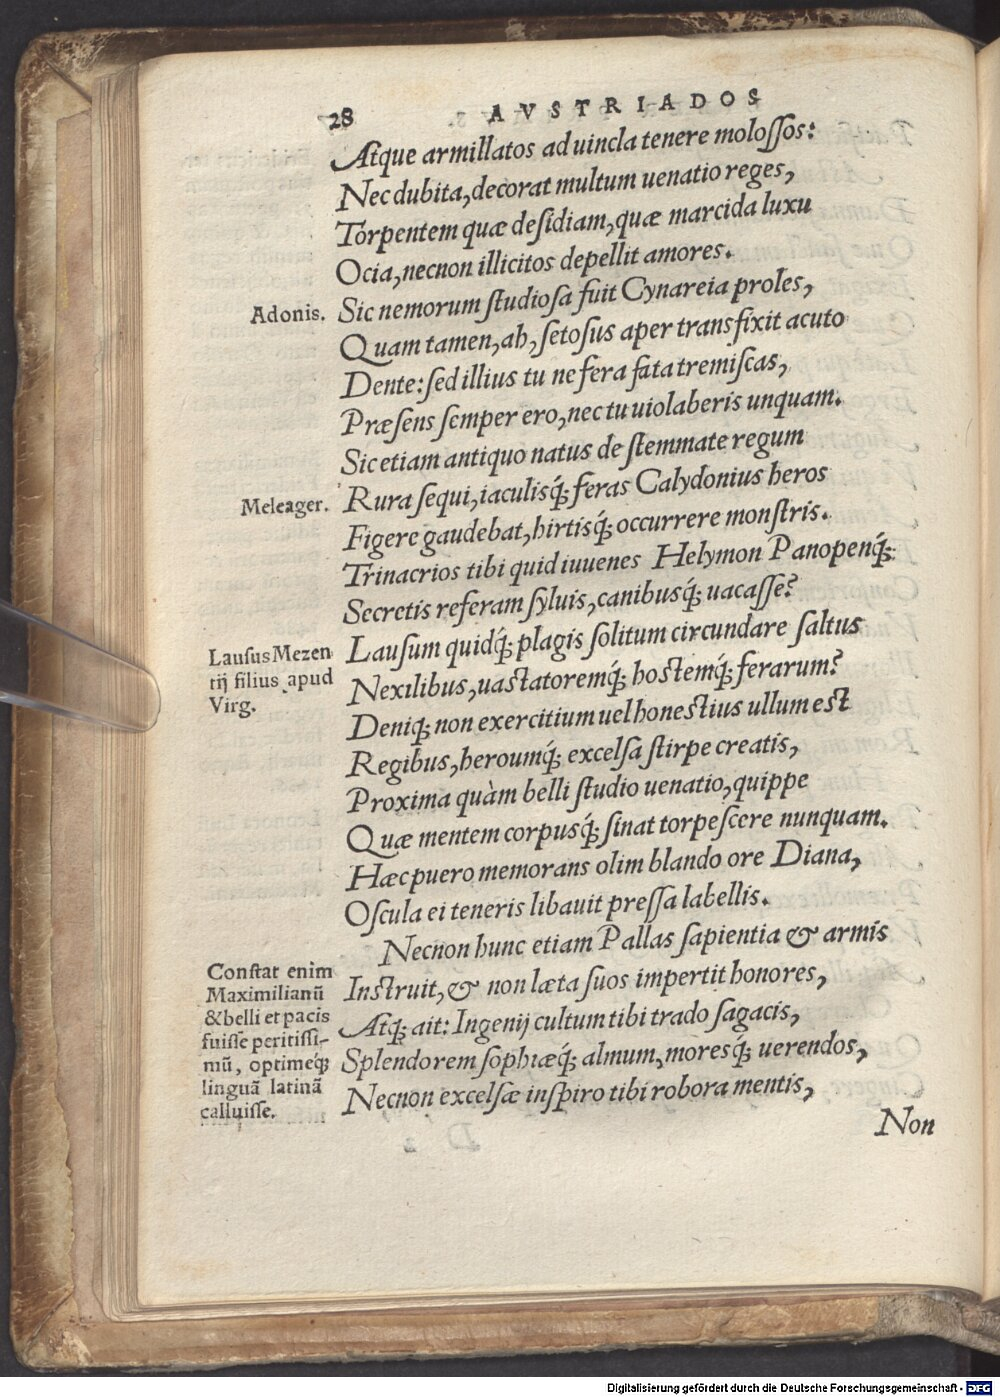 28 AVSTRIADOS
Atque armillatos ad uincla tenere molossos:
Nec dubita, decorat multum uenatio reges,
Torpentem quæ desidiam, quæ marcida luxu
Ocia, necnon illicitos depellit amores.
Adonis. Sic nemorum studiosa fuit Cynareia proles,
Quam tamen, ah, setosus aper transfixit acuto
Dente: sed illius tu ne fera fata tremiscas,
Præsens semper ero, nec tu uiolaberis unquam.
Sic etiam antiquo natus de stemmate regum
Meleager. Rura sequi, iaculisq́; feras Calydonius heros
Figere gaudebat, hirtisq́; occurrere monstris.
Trinacrios tibi quid iuuenes Helymon Panopenq́;
Secretis referam syluis, canibusq́; uacasse?
Lausum quidq́; plagis solitum circundare saltus
Lausus Mezen
tij filius apud
Virg.
Nexilibus, uastatoremq́; hostemq́; ferarum?
Deniq; non exercitium uel honestius ullum est
Regibus, heroumq́; excelsa stirpe creatis,
Proxima quàm belli studio uenatio, quippe
Quæ mentem corpusq́; sinat torpescere nunquam.
Hæc puero memorans olim blando ore Diana,
Oscula ei teneris libauit pressa labellis.
Necnon hunc etiam Pallas sapientia & armis
Constat enim
Maximilianū
& belli et pacis
fuisse peritissi-
mū, optimeq́;
linguā latinā
calluisse.
Instruit, & non læta suos impertit honores,
Atq; ait: Ingenij cultum tibi trado sagacis,
Splendorem sophiæq́; almum, moresq́; uerendos,
Necnon excelsæ inspiro tibi robora mentis,
Non
Digitalisierung gefördert durch die Deutsche Forschungsgemeinschaft - DFG